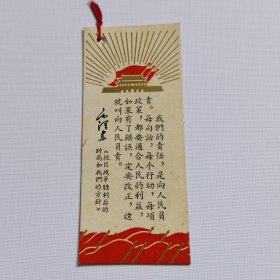 我們的責任，是向人民負
責。每句話，每个行动，每項
政策，都要適合人民的利益，
如果有了錯誤，定要改正，这
就叫向人民負責。
毛泽东
《抗日战争胜利后的
时局和我們的方針》